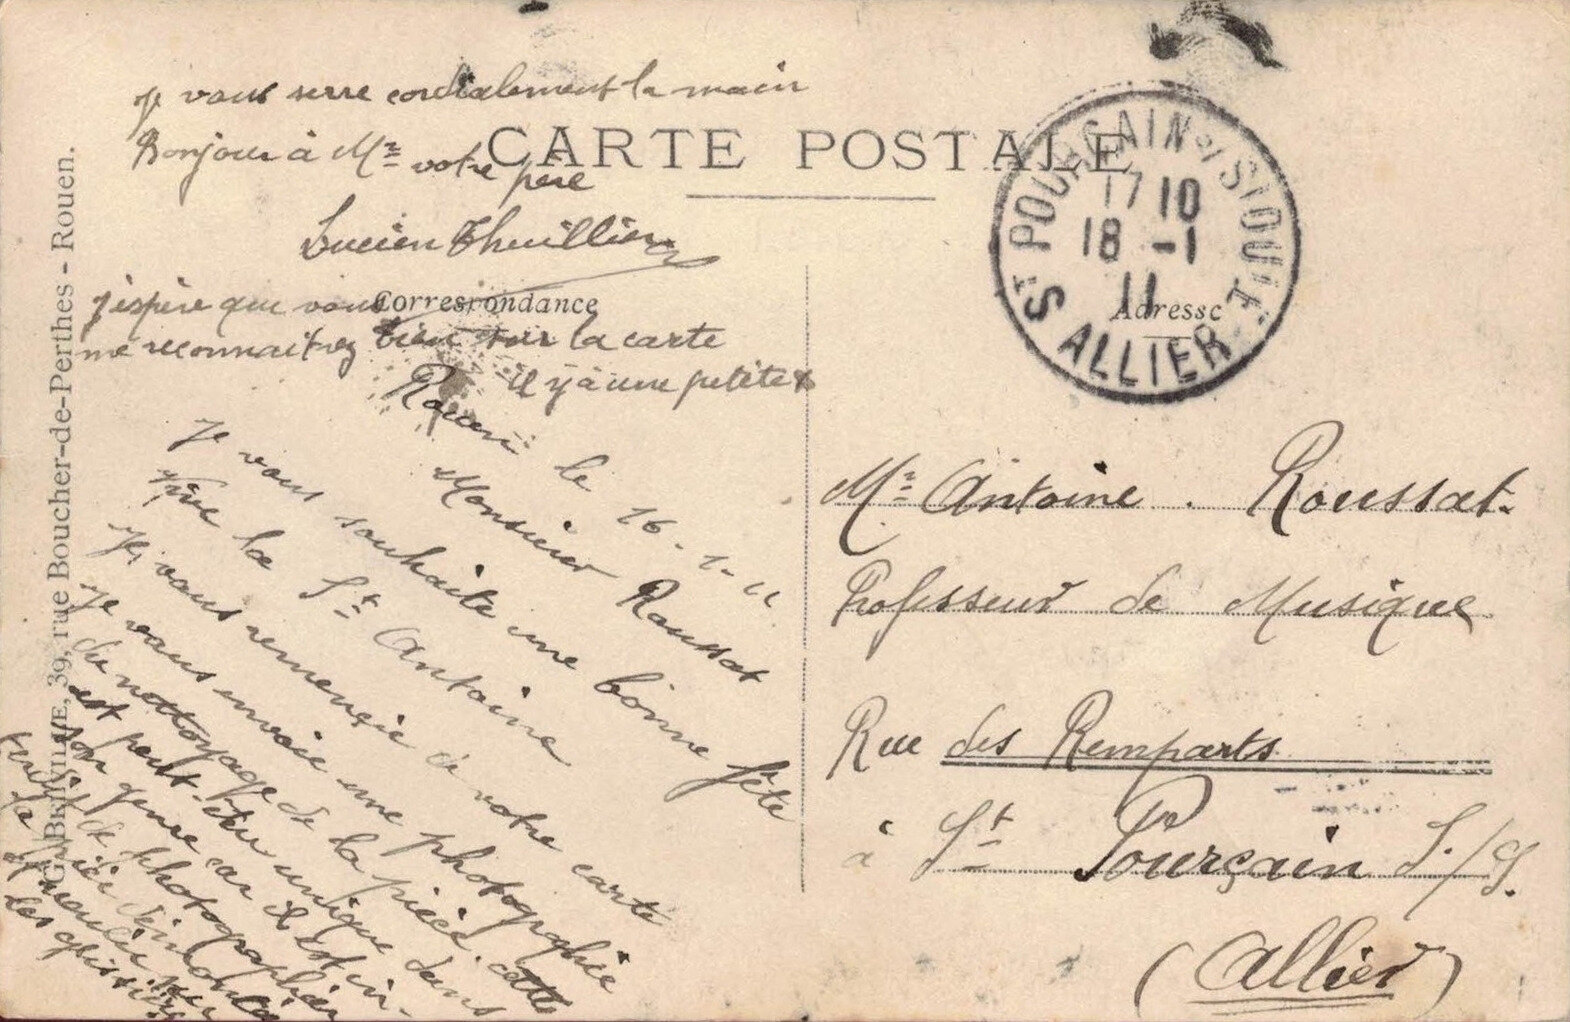 CARTE POSTALE
Correspondance
Adresse
G. BRAYMAË, 39, rue Boucher-de-Perthes - Rouen.
St POURÇAIN S/ SIOULE
17 10
18 -1
11
ALLIER
Rouen le 16-1-11
Monsieur Roussat
Je vous souhaite une bonne fête
Vive la St Antoine
Je vous remercie de votre carte
Je vous envoie une photographie
du nettoyage de la pièce. cette
est peut-être unique dans
son genre car il est in-
terdit de photographier
la pièce démontée
et placée sur
les glissières
Je vous serre cordialement la main
Bonjour à Mr votre père
Lucien Thuillier
J'espère que vous
me reconnaitrez bien sur la carte
il y a une petite x
Mr Antoine. Roussat.
Professeur de Musique
Rue des Remparts
à St Pourçain S./S.
(Allier)